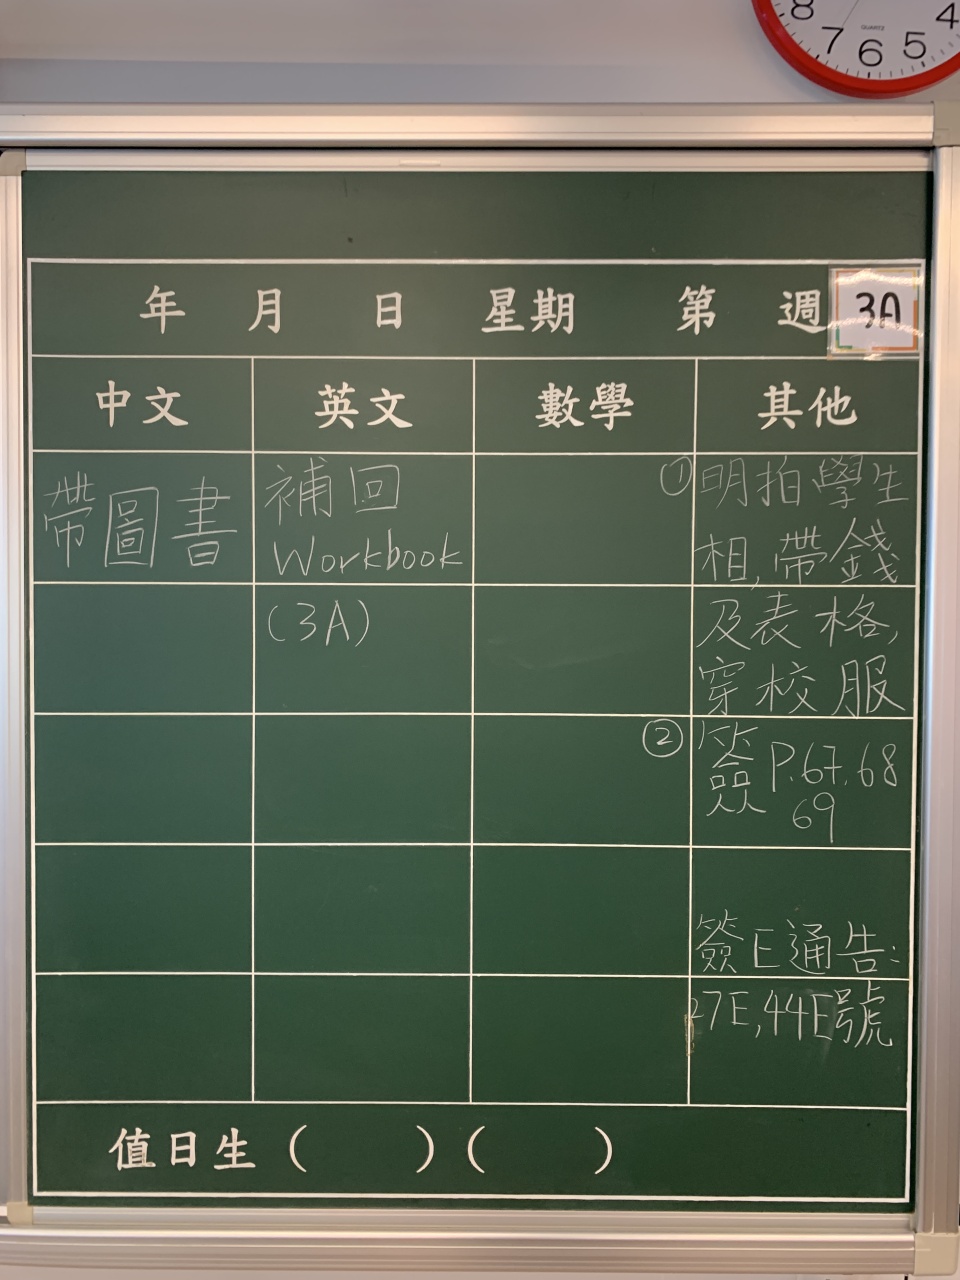 8 7 6 5 4
QUARTZ
年 月 日 星期 第 週 3A
中文 英文 數學 其他
帶圖書
補回
Workbook
(3A)
① 明拍學生
相,帶錢
及表格,
穿校服
② 簽 P.67.68
69
簽E通告:
27E,44E號
值日生 ( ) ( )